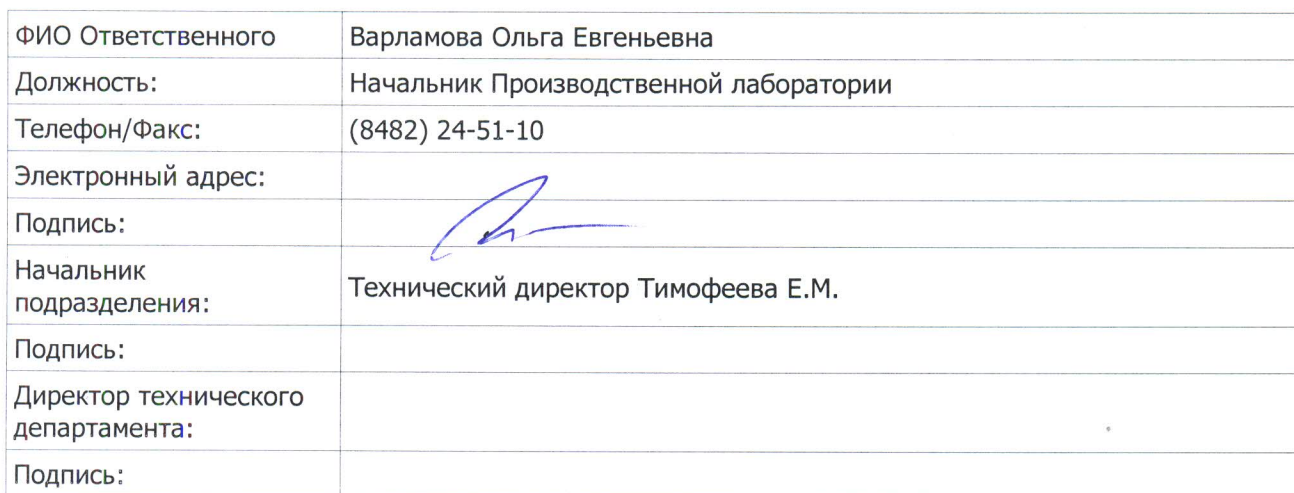 ФИО Ответственного Варламова Ольга Евгеньевна
Должность: Начальник Производственной лаборатории
Телефон/Факс: (8482) 24-51-10
Электронный адрес:
Подпись:
Начальник
подразделения:
Технический директор Тимофеева Е.М.
Подпись:
Директор технического
департамента:
Подпись: